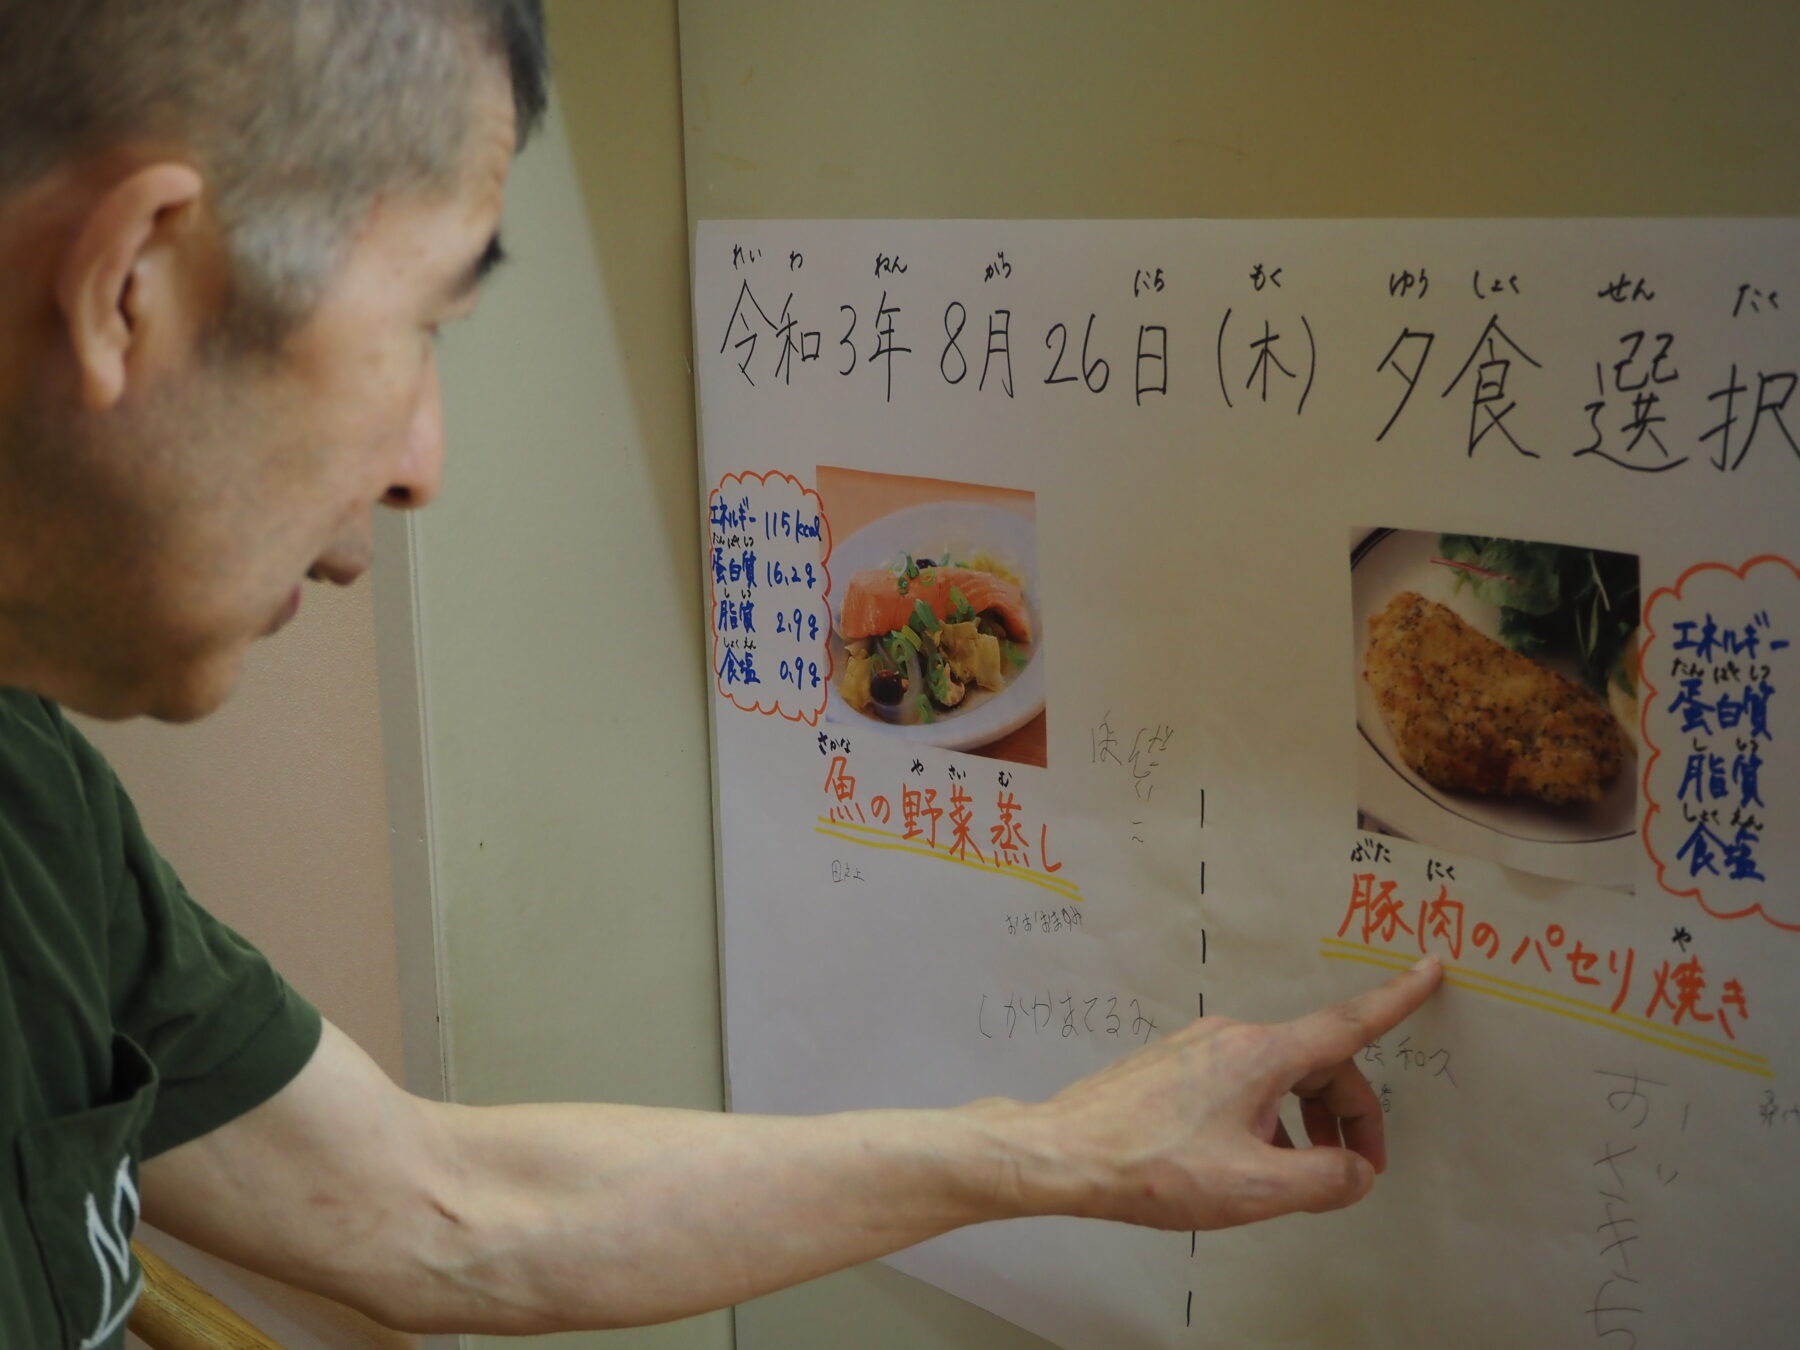 れい わ ねん がつ にち もく ゆう しょく せん たく
令和3年 8月 26日 (木) 夕食選択
エネルギー 115kcal
たん ぱく しつ
蛋白質 16.2g
し しつ
脂質 2.9g
しょく えん
食塩 0.9g
さかな や さい む
魚の野菜蒸し
しかやまてるみ
エネルギー
たん ぱく しつ
蛋白質
し しつ
脂質
しょく えん
食塩
ぶた にく や
豚肉のパセリ焼き